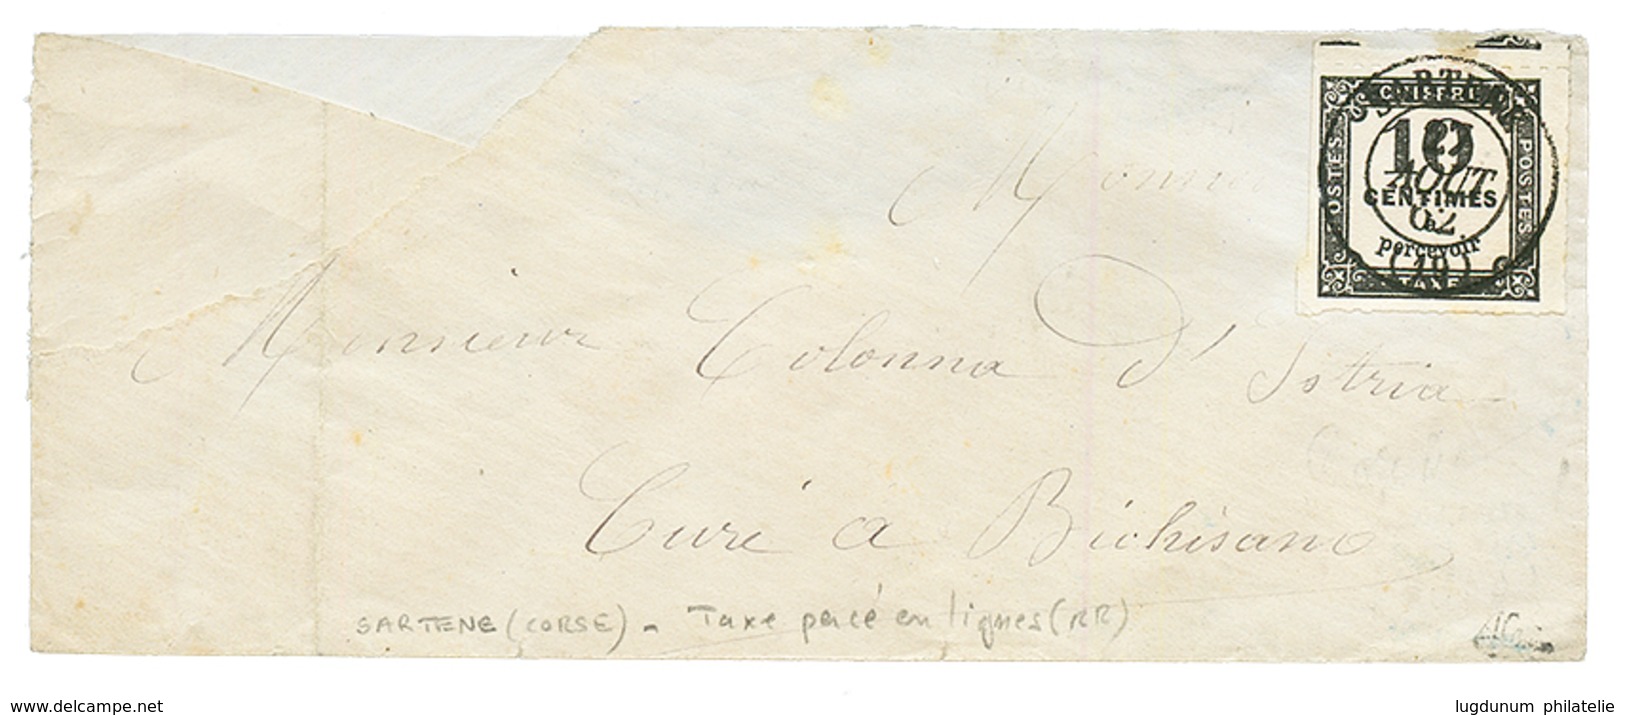 SARTENE
CHIFFRE
10
AOUT
CENTIMES
62
à
percevoir
(19)
TAXE
POSTES
POSTES
Monsieur
Monsieur Colonna d'Istria
Curé a Bichisano
SARTENE (CORSE) - Taxe percé en lignes (RR)
www.delcampe.net
lugdunum philatelie